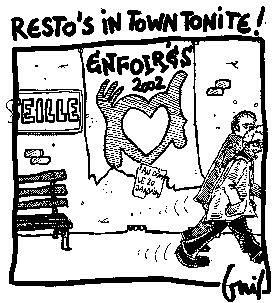 RESTO'S IN TOWN TONITE!
ENFOIRÉS
2002
SEILLE